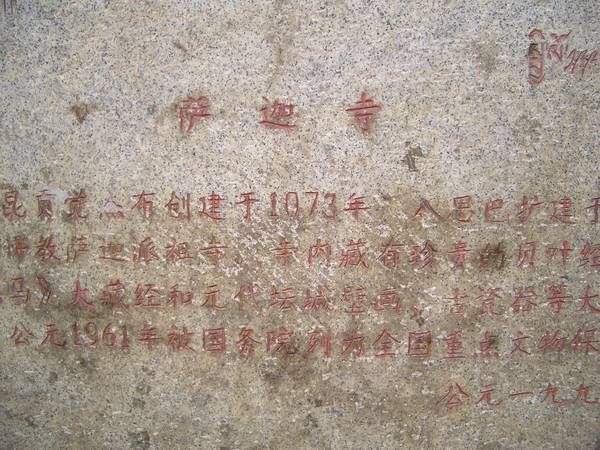 萨迦寺
昆贡觉杰布创建于1073年 八思巴扩建于
佛教萨迦派祖寺 寺内藏有珍贵的贝叶经
马》大藏经和元代坛城壁画 古瓷器等大
公元1961年被国务院列为全国重点文物保
公元一九九